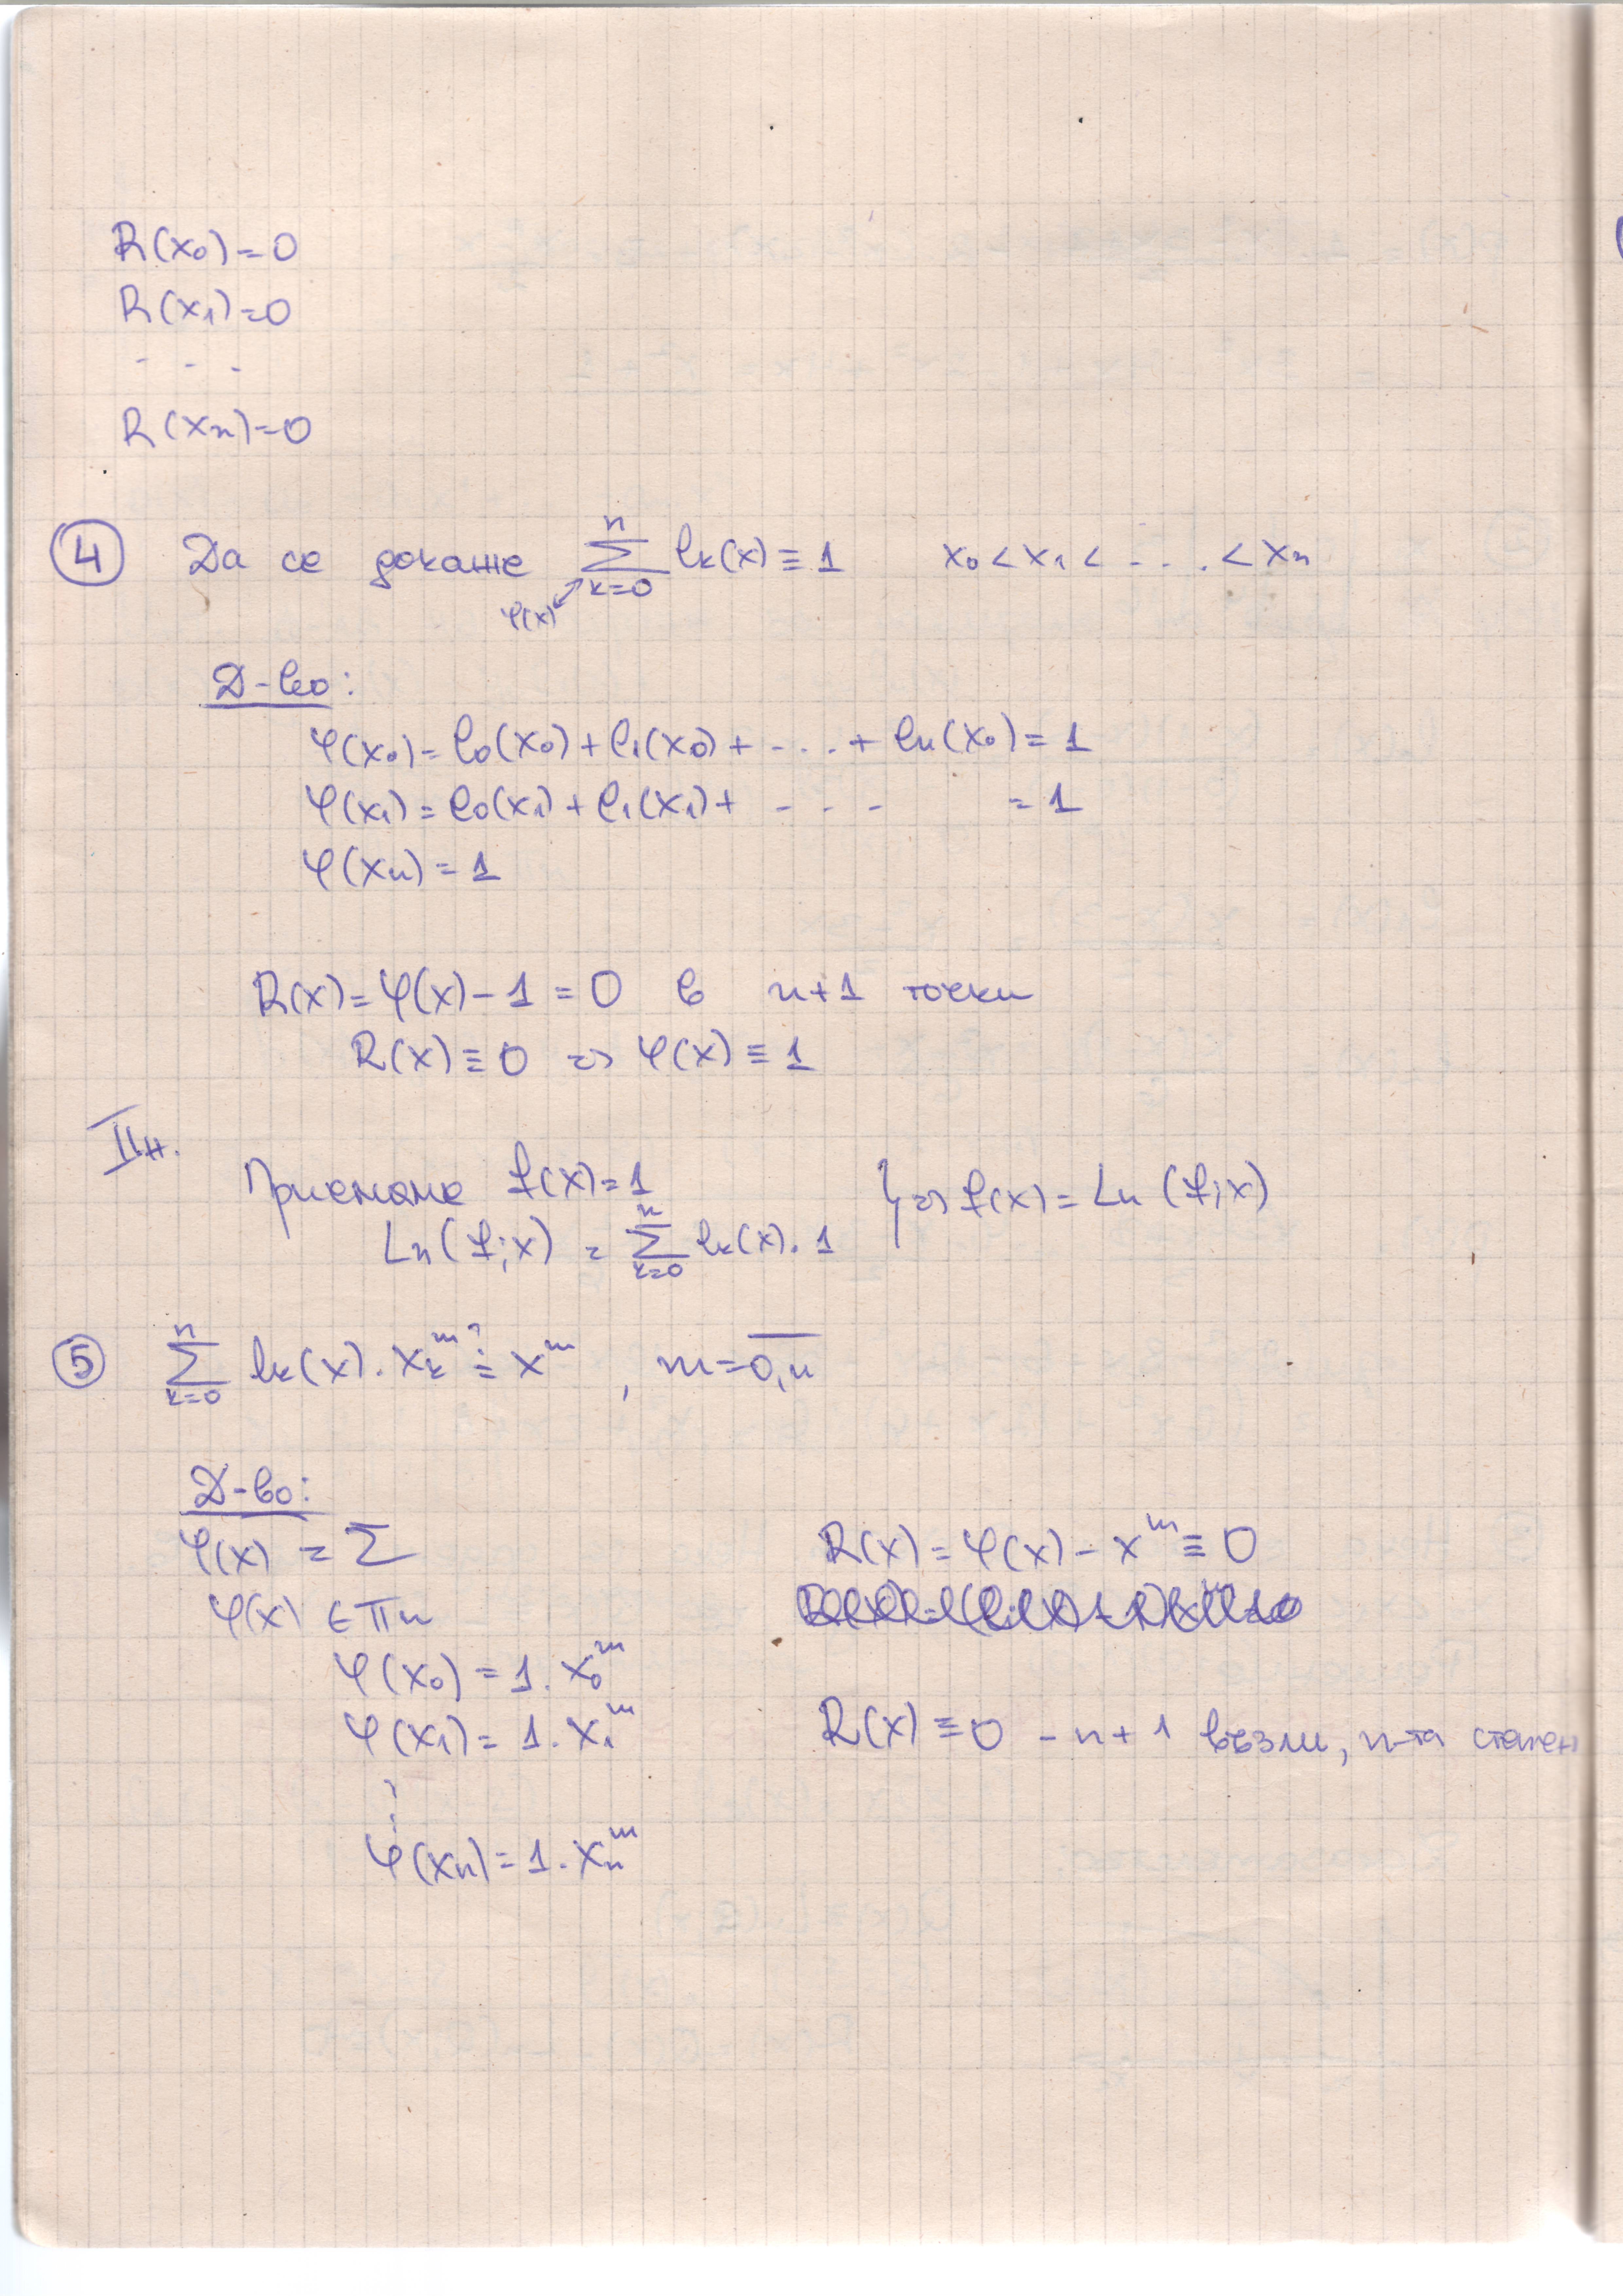 R(x₀)=0
R(x₁)=0
- - -
R(xₙ)=0
④ Да се докаже ∑ₖ₌₀ⁿ lₖ(x) ≡ 1    x₀ < x₁ < - - . . < xₙ
φ(x)
Д-во:
φ(x₀) = l₀(x₀) + l₁(x₀) + - . . + lₙ(x₀) = 1
φ(x₁) = l₀(x₁) + l₁(x₁) + - - - = 1
φ(xₙ) = 1
R(x) = φ(x) - 1 = 0 в n+1 точки
R(x) ≡ 0 => φ(x) ≡ 1
II н.
Приемаме f(x) = 1    } => f(x) = Lₙ(f;x)
Lₙ(f;x) = ∑ₖ₌₀ⁿ lₖ(x) . 1
⑤ ∑ₖ₌₀ⁿ lₖ(x) . xₖᵐ ≟ xᵐ , m = 0,n
Д-во:
φ(x) = ∑    R(x) = φ(x) - xᵐ ≡ 0
φ(x) ∈ πₙ
φ(x₀) = 1 . x₀ᵐ
φ(x₁) = 1 . x₁ᵐ    R(x) ≡ 0 - n + 1 възли, n-та степен
⋮
φ(xₙ) = 1 . xₙᵐ